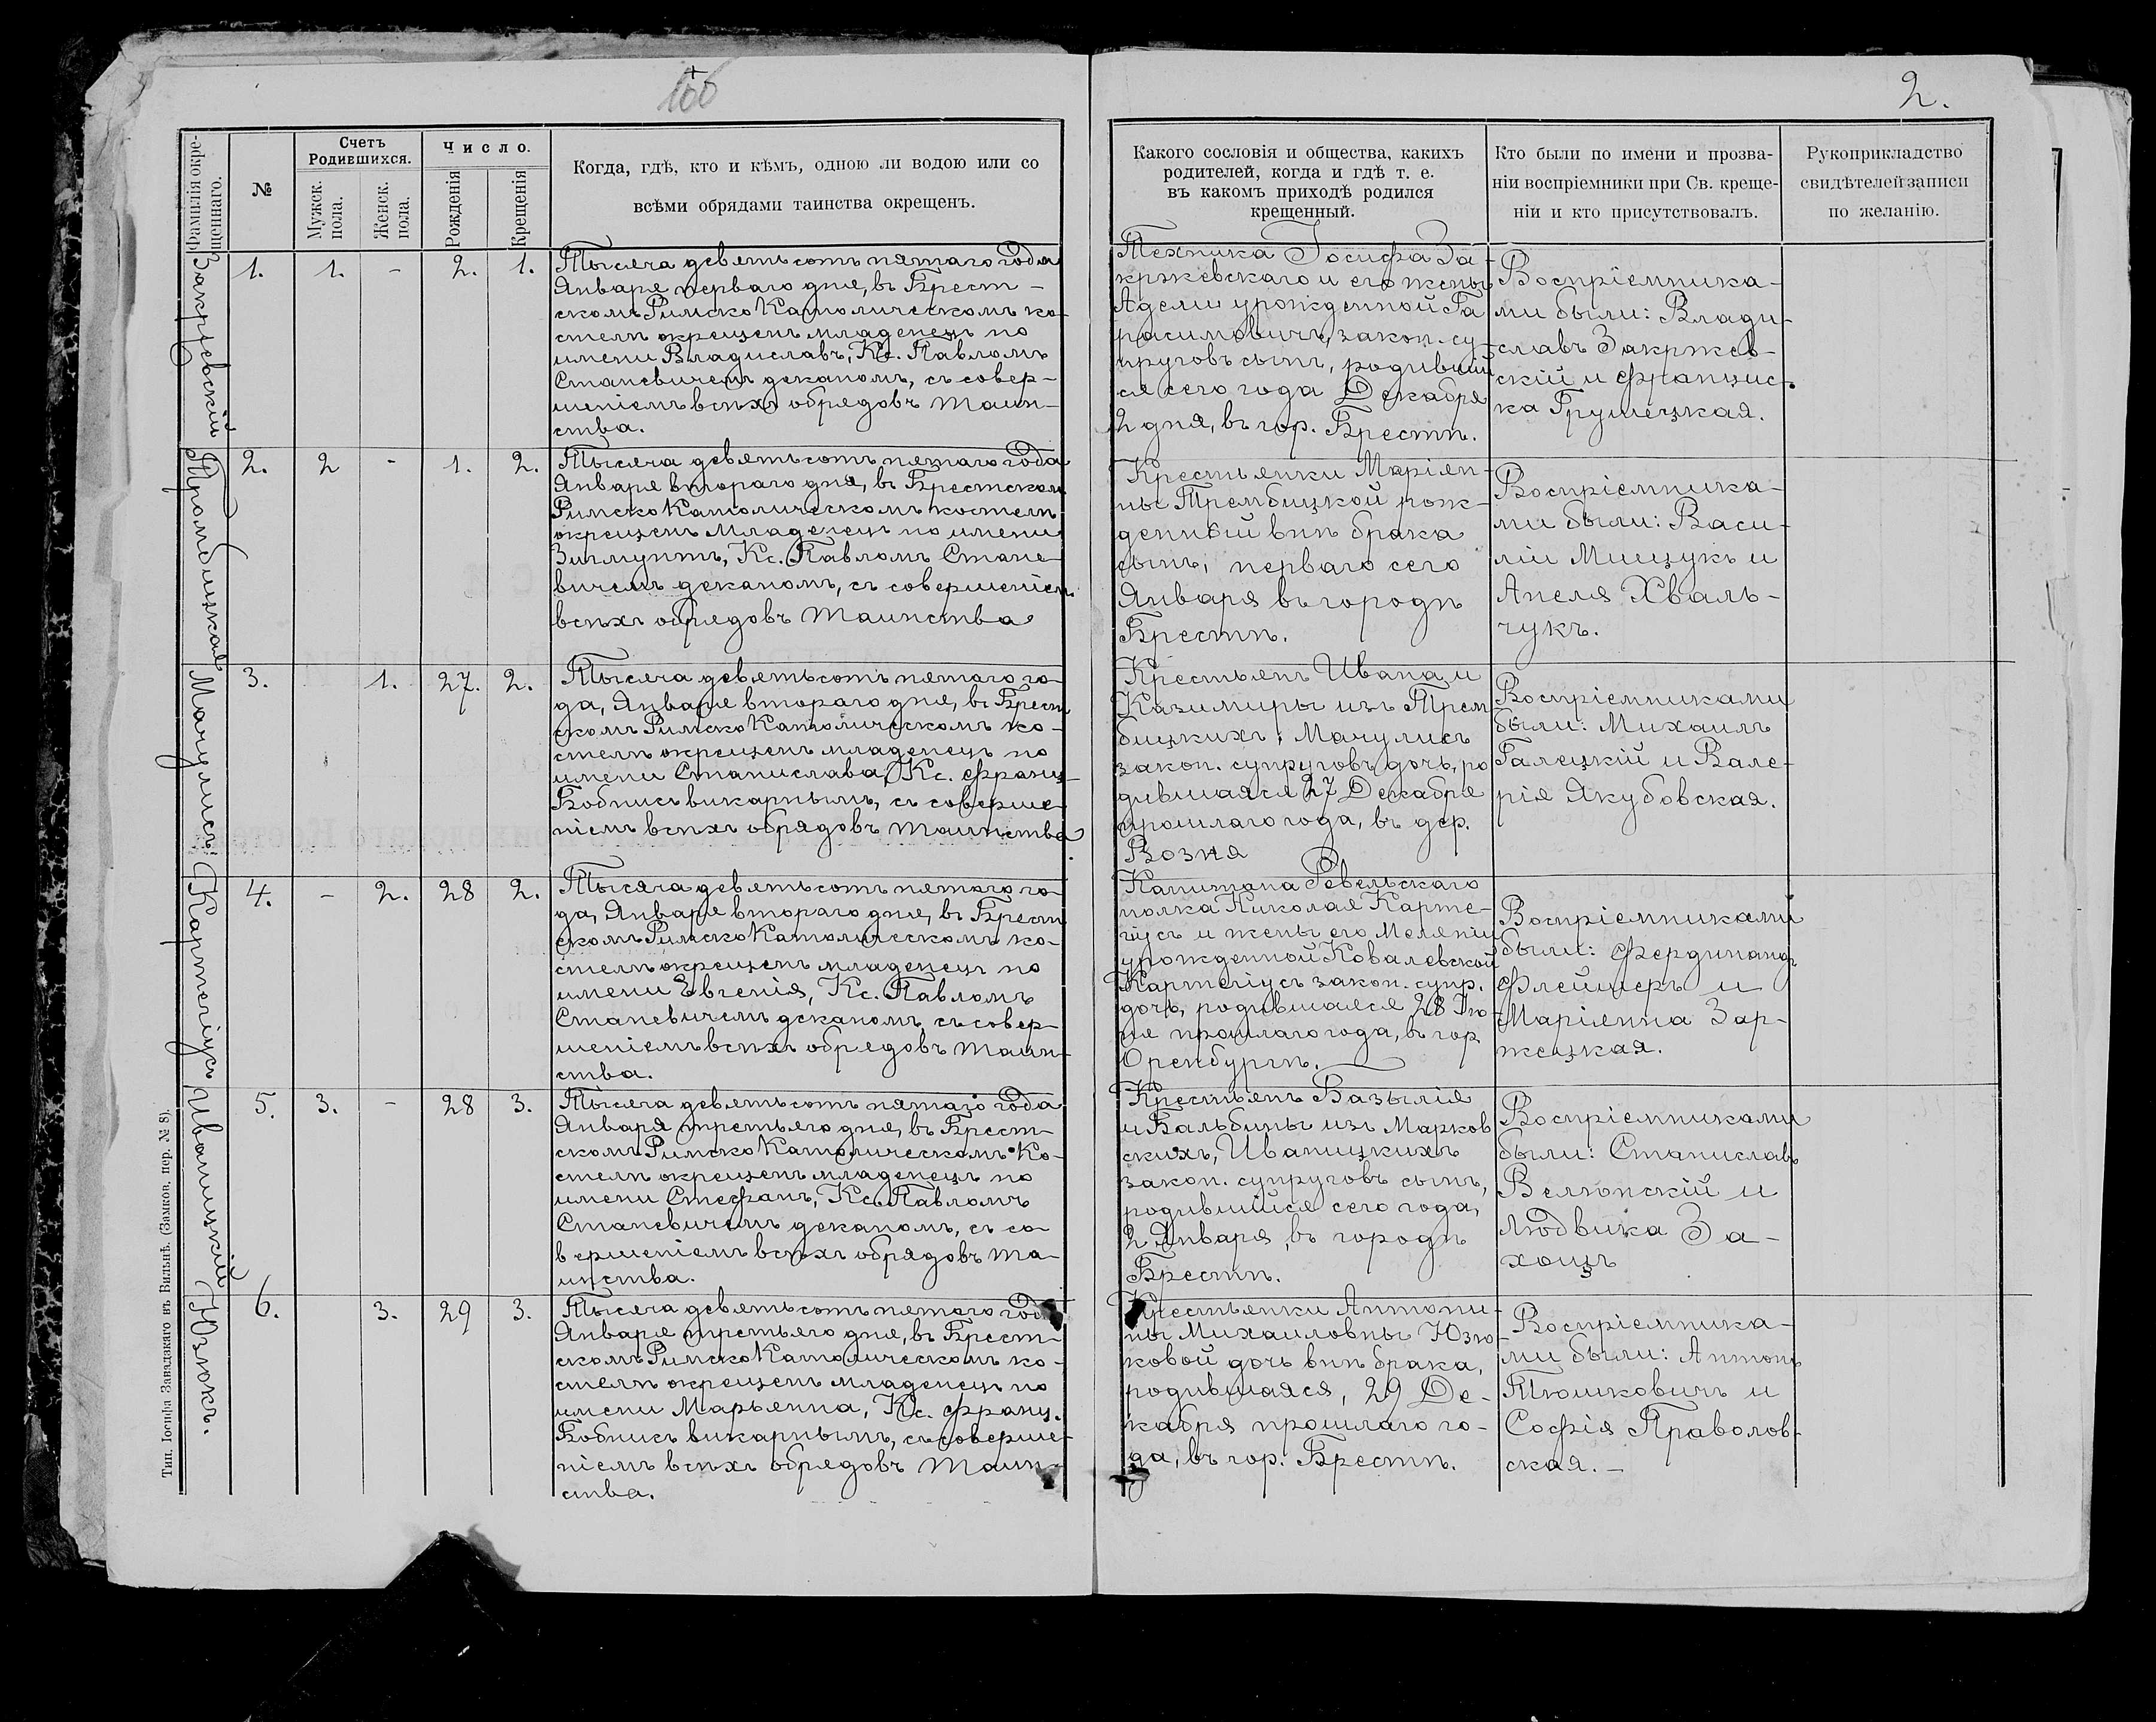 166
2.
Фамилія окре-
щеннаго.
№
Счетъ
Родившихся.
Мужск.
пола.
Женск.
пола.
Число.
Рожденія
Крещенія
Когда, гдѣ, кто и кѣмъ, одною ли водою или со
всѣми обрядами таинства окрещенъ.
Какого сословія и общества, какихъ
родителей, когда и гдѣ т. е.
въ какомъ приходѣ родился
крещенный.
Кто были по имени и прозва-
ніи воспріемники при Св. креще-
ніи и кто присутствовалъ.
Рукоприкладство
свидѣтелей записи
по желанію.
Закржевскій
1. 1. - 2. 1.
Тысяча девятьсотъ пятаго года
Января перваго дня, въ Брест-
скомъ Римско Католическомъ ко-
стелѣ окрещенъ младенецъ по
имени Владиславъ, Кс. Павломъ
Станевичемъ деканомъ, съ совер-
шеніемъ всѣхъ обрядовъ Таин-
ства.
Техника Іосифа За-
кржевскаго и его жены
Адели урожденной Га
расимовичъ, закон. су-
пруговъ сынъ, родивший
ся сего года Декабря
2 дня, въ гор. Брестѣ.
Воспріемника-
ми были: Влади-
славъ Закржев-
скій и Францис-
ка Грушецкая.
Тромбицкая
2. 2 - 1. 2.
Тысяча девятьсотъ пятаго года
Января втораго дня, въ Брестском
Римско Католическомъ костелѣ
окрещенъ Младенецъ по имени
Зигмунтъ, Кс. Павломъ Стане-
вичемъ деканомъ, съ совершеніем
всѣхъ обрядовъ Таинства
Крестьянки Маріян-
ны Трембицкой рож-
денный внѣ брака
сынъ, перваго сего
Января въ городѣ
Брестѣ.
Воспріемника-
ми были: Васи-
лій Мищукъ и
Анеля Хваль-
чукъ.
Мачулисъ
3. 1. 27. 2.
Тысяча девятьсотъ пятаго го-
да, Января втораго дня, въ Брест
скомъ Римско Католическомъ ко-
стелѣ окрещенъ младенецъ по
имени Станислава, Кс. Франц.
Бобнисъ викарнымъ, съ соверше-
ніемъ всѣхъ обрядовъ таинства.
Крестьянъ Ивана и
Казимиры изъ Трем
бицкихъ, Мачулисъ
закон. супруговъ дочь, ро
дившаяся 27 Декабря
прошлаго года, въ дер.
Возня
Воспріемниками
были: Михаилъ
Галецкій и Вале-
рія Якубовская.
Картегіусъ
4. - 2. 28 2.
Тысяча девятьсотъ пятаго го-
да, Января втораго дня, въ Брест
скомъ Римско Католическомъ ко-
стелѣ окрещенъ младенецъ по
имени Евгенія, Кс. Павломъ
Станевичемъ деканомъ, съ совер-
шеніемъ всѣхъ обрядовъ Таин-
ства.
Капитана Ревельскаго
полка Николая Карте-
гіусъ и жены его Меляніи
урожденной Ковалевской
Картегіусъ закон. супр.
дочь, родившаяся 28 Ію-
ня прошлаго года, въ гор.
Оренбургѣ.
Воспріемниками
были: Фердинандъ
Флейшеръ и
Маріянна Зар-
жецкая.
Иваницкій
5. 3. - 28 3.
Тысяча девятьсотъ пятаго года
Января третьяго дня, въ Брест-
скомъ Римско Католическомъ Ко-
стелѣ окрещенъ младенецъ по
имени Стефанъ, Кс. Павломъ
Станевичемъ деканомъ, съ со-
вершеніемъ всѣхъ обрядовъ та-
инства.
Крестьянъ Базылія
и Бальбины изъ Марков
скихъ, Иваницкихъ
закон. супруговъ сынъ,
родившійся сего года,
2 Января, въ городѣ
Брестѣ.
Воспріемниками
были: Станиславъ
Велюпскій и
Людвика За-
хощъ
Юзюкъ.
6. 3. 29 3.
Тысяча девятьсотъ пятаго года
Января третьяго дня, въ Брест-
скомъ Римско Католическомъ ко-
стелѣ окрещенъ младенецъ по
имени Марьянна, Кс. Франц.
Бобнисъ викарнымъ, съ соверше-
ніемъ всѣхъ обрядовъ Таин-
ства.
Крестьянки Антони-
ны Михаиловны Юзю-
ковой дочь внѣ брака,
родившаяся, 29 Де-
кабря прошлаго го-
да, въ гор. Брестѣ.
Воспріемника-
ми были: Антонъ
Тюшковичъ и
Софія Праволов-
ская.
Тип. Іосифа Завадзкаго въ Вильнѣ. (Замков. пер. № 8).